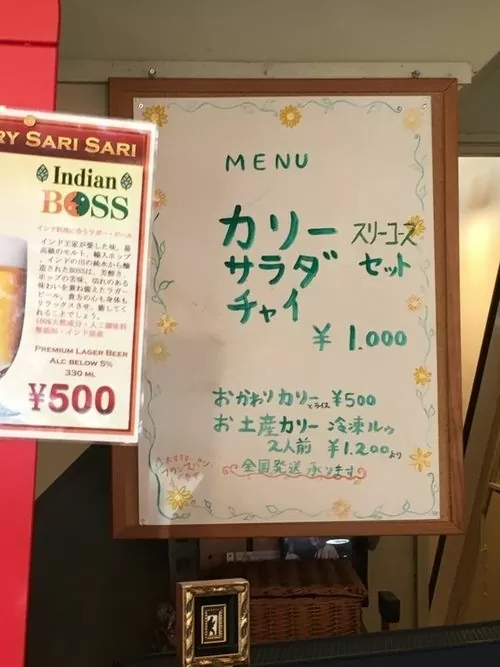 RY SARI SARI
Indian
BOSS
インド料理に合うラガー・ビール
インド王家が愛した味、最
高級のモルト、輸入ホップ
、インドの川の純水から醸
造されたBOSSは、芳醇さ、
ホップの苦味、切れのある
味わいを兼ね備えたラガー
ビール。貴方の心も身体も
リラックスさせ、癒してく
れることでしょう。
100%天然成分・人工調味料
無添加・インド原産
PREMIUM LAGER BEER
ALC BELOW 5%
330 ML
¥500
MENU
カリー
サラダ
チャイ
スリーコース
セット
¥1.000
おかわりカリーとライス ¥500
お土産カリー 冷凍ルゥ
2人前 ¥1.200より
全国発送承ります
フランスパン